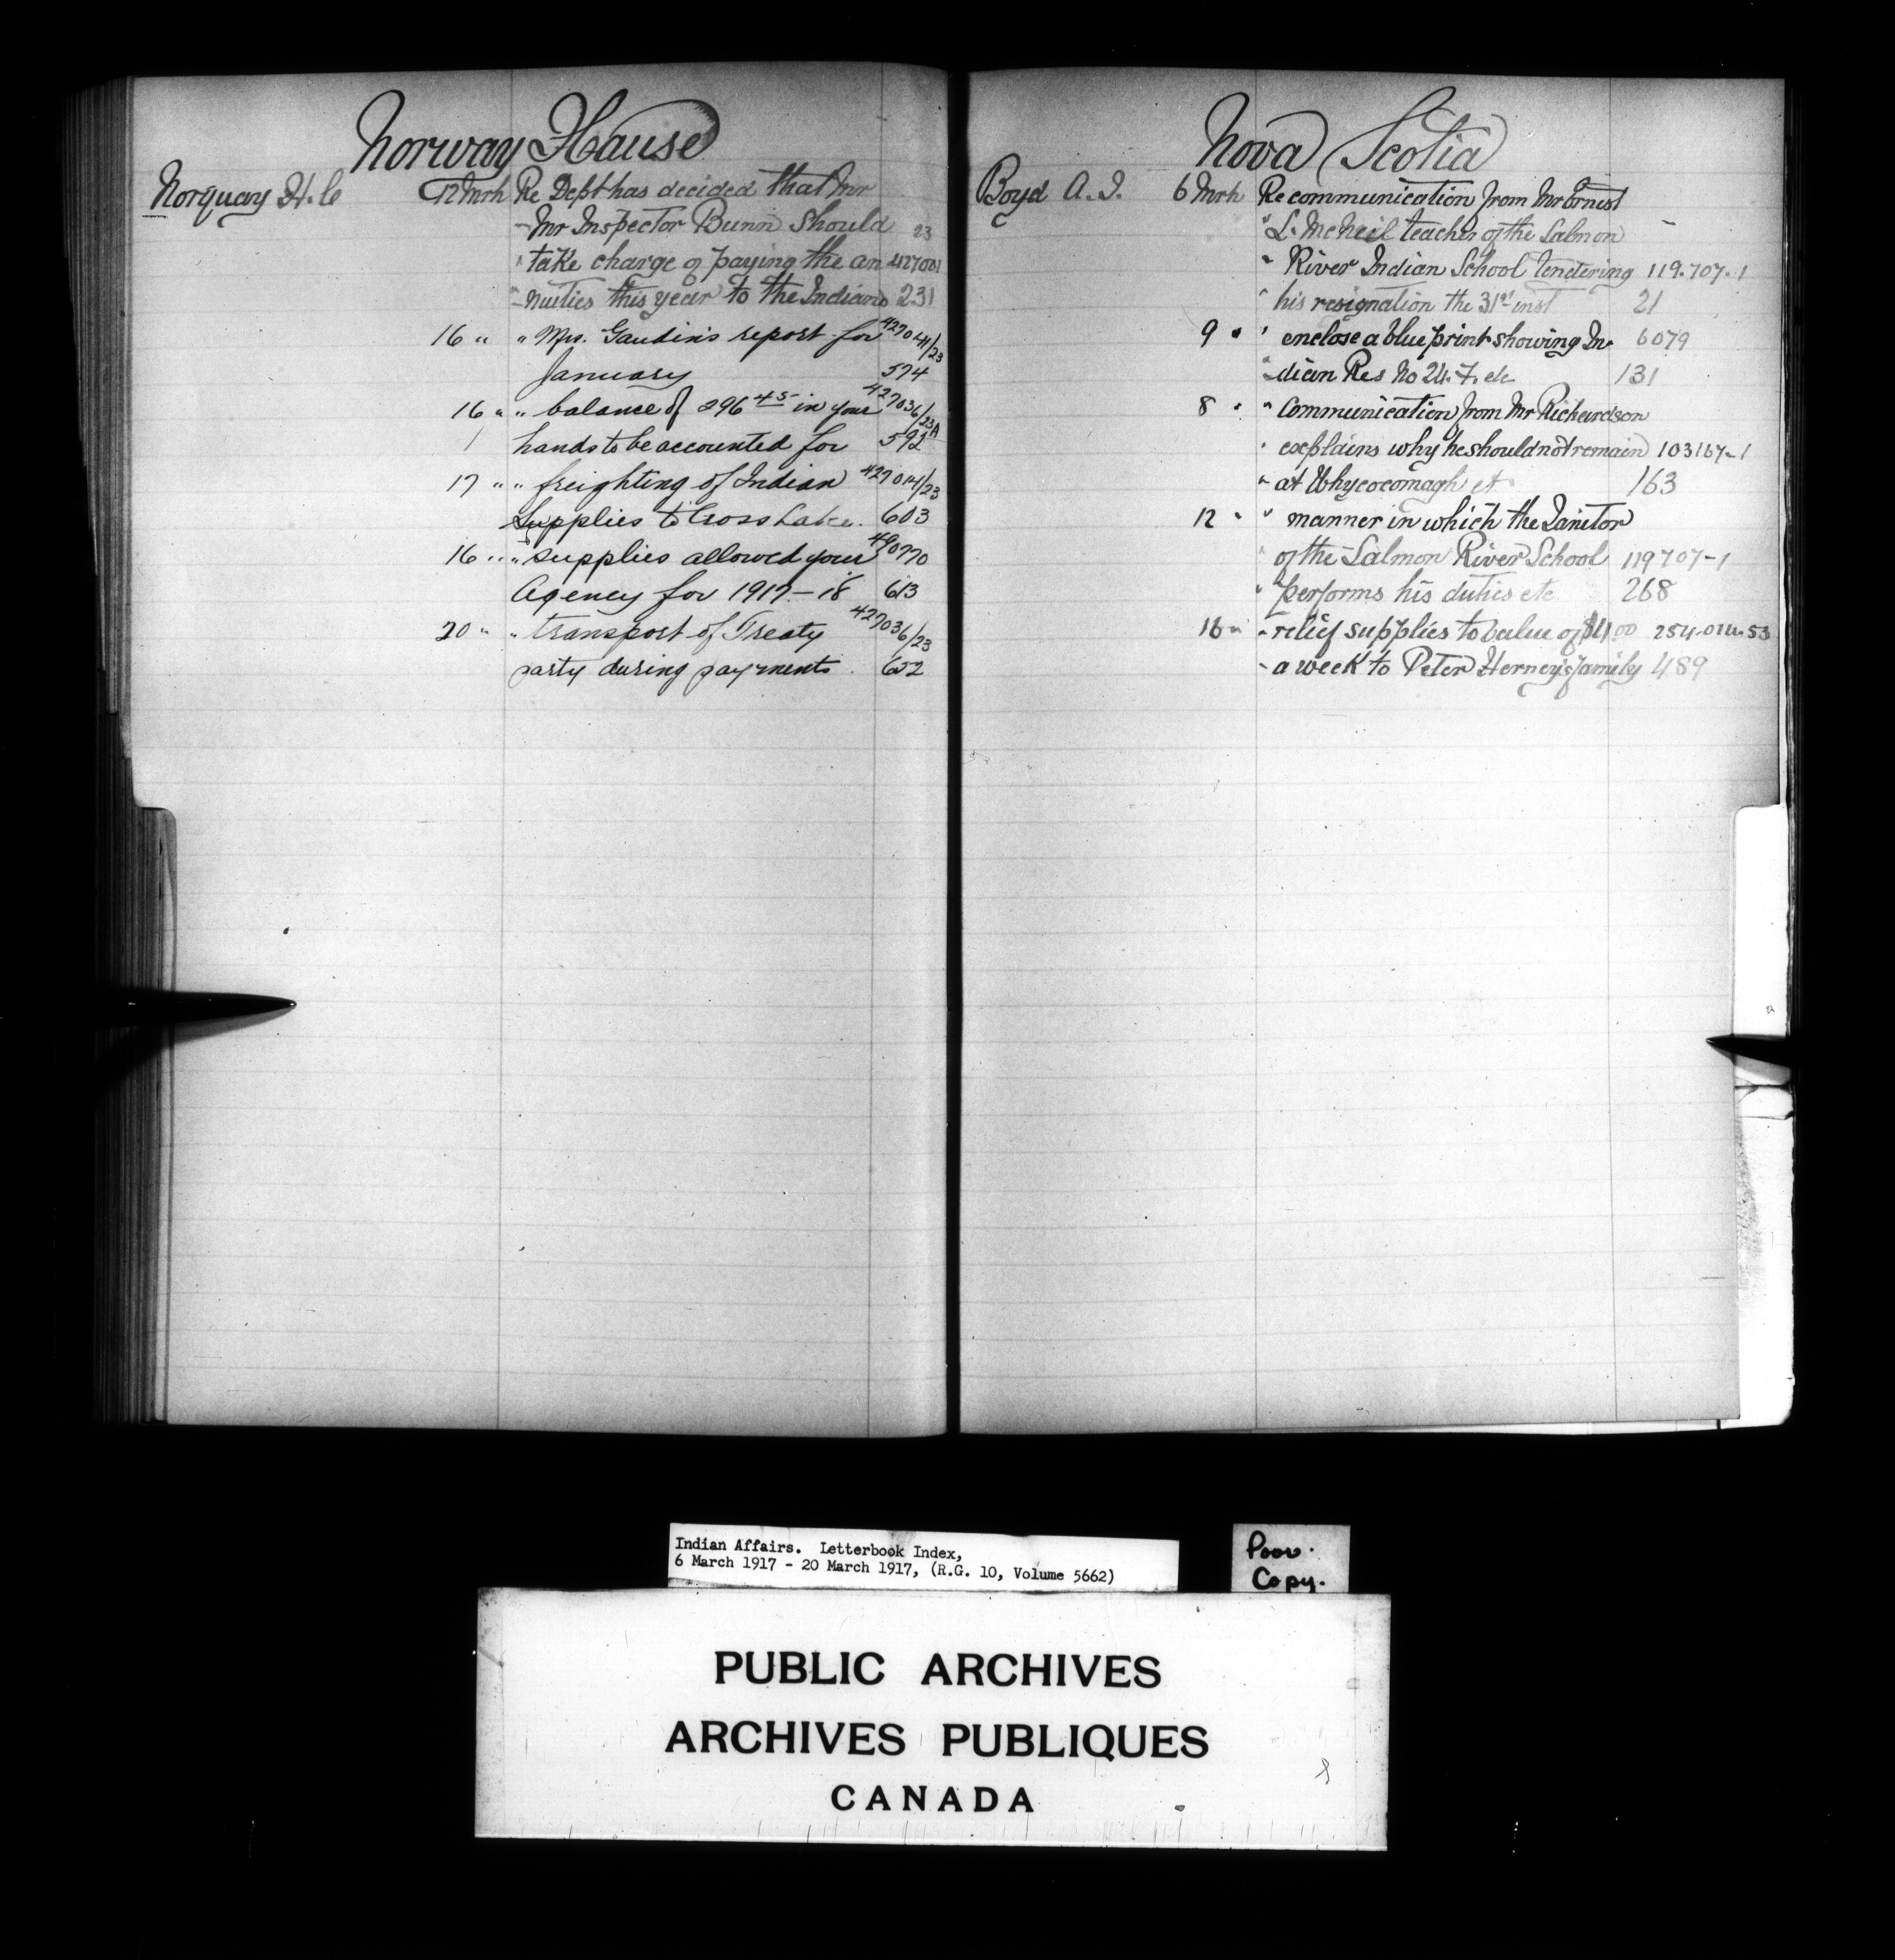 Norway House
Norquay H. C 12 Mrh Re Dept has decided that Mr
Mr Inspector Bunn should 23
take charge of paying the an 427001
nuities this year to the Indians 231
16 " " Mrs. Gaudin's report for 427044/23
January 574
16 " " balance of 296 45 in your 427036/23A
hands to be accounted for 592
17 " " freighting of Indian 427014/23
Supplies to Cross Lake. 603
16 " " supplies allowed your 490770
Agency for 1917-18 613
20 " " transport of Treaty 427036/23
party during payments 652
Nova Scotia
Boyd A. J. 6 Mrh Re communication from Mr Ernest
" L. McNeil teacher of the Salmon
" River Indian School tendering 119.707-1
" his resignation the 31st inst 21
9 " " enclose a blue print showing In- 6079
" dian Res No 24. F. etc 131
8 " " Communication from Mr Richardson
" explains why he should not remain 103167-1
" at Whycocomagh et 163
12 " " manner in which the Janitor
" of the Salmon River School 119707-1
" performs his duties etc 268
16 " " relief supplies to value of $4.00 254-014-53
" a week to Peter Herney's family 489
Indian Affairs. Letterbook Index,
6 March 1917 - 20 March 1917, (R.G. 10, Volume 5662)
Poor.
Copy.
PUBLIC ARCHIVES
ARCHIVES PUBLIQUES
CANADA